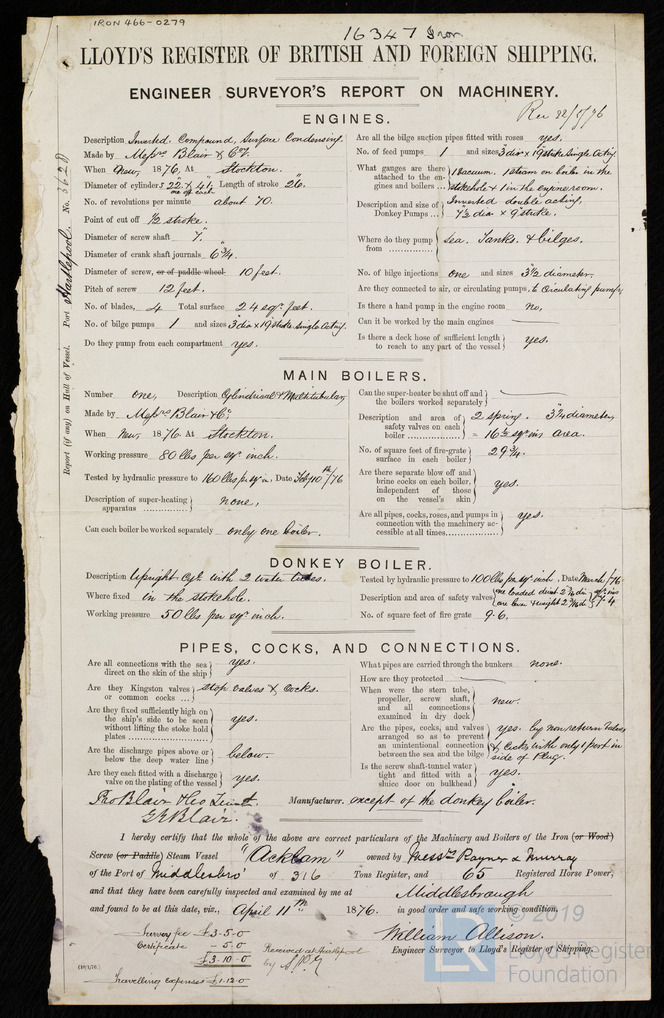 IRON 466-0279
16347 Iron
LLOYD'S REGISTER OF BRITISH AND FOREIGN SHIPPING.
ENGINEER SURVEYOR'S REPORT ON MACHINERY.
Rec 22/5/76
Report (if any) on Hull of Vessel. Port Hartlepool. No. 3628
ENGINES.
Description Inverted, Compound, Surface Condensing.
Made by Messrs Blair & Co.
When New, 1876. At Stockton.
Diameter of cylinders 22" & 41" one off each Length of stroke 26.
No. of revolutions per minute about 70.
Point of cut off 1/2 stroke.
Diameter of screw shaft 7."
Diameter of crank shaft journals 6 3/4.
Diameter of screw, or of paddle wheel 10 feet.
Pitch of screw 12 feet.
No. of blades, 4 Total surface 24 sqr feet.
No. of bilge pumps 1 and sizes 3 dia x 19 stroke. Single Acting.
Do they pump from each compartment yes.
Are all the bilge suction pipes fitted with roses yes.
No. of feed pumps 1 and sizes 3 dia x 19 stroke Single Acting
What gauges are there attached to the engines and boilers 1 vacuum. 1 steam on boiler in the stokehole & 1 in the engine room.
Description and size of Donkey Pumps Inverted double acting. 7 1/2 dia x 9" stroke.
Where do they pump from Sea. Tanks. & bilges.
No. of bilge injections one and sizes 3 1/2 diameter.
Are they connected to air, or circulating pumps, to Circulating pump,
Is there a hand pump in the engine room no,
Can it be worked by the main engines
Is there a deck hose of sufficient length to reach to any part of the vessel yes.
MAIN BOILERS.
Number one, Description Cylindrical & Multitubular
Made by Messrs Blair & Co.
When New, 1876. At Stockton.
Working pressure 80 lbs per sqr inch.
Tested by hydraulic pressure to 160 lbs pr sqr in, Date Feby 10th/76
Description of super-heating apparatus none,
Can each boiler be worked separately only one boiler.
Can the super-heater be shut off and the boilers worked separately
Description and area of safety valves on each boiler 2 spring. 3 1/4 diameter, = 16 1/2 sqr ins area.
No. of square feet of fire-grate surface in each boiler 29 3/4.
Are there separate blow off and brine cocks on each boiler, independent of those on the vessel's skin yes.
Are all pipes, cocks, roses, and pumps in connection with the machinery accessible at all times yes.
DONKEY BOILER.
Description Upright Cyl. with 2 water tubes.
Where fixed in the stokehole.
Working pressure 50 lbs per sqr inch.
Tested by hydraulic pressure to 100 lbs per sqr inch. Date March/76
Description and area of safety valves
No. of square feet of fire grate 9.6.
PIPES, COCKS, AND CONNECTIONS.
Are all connections with the sea direct on the skin of the ship yes.
Are they Kingston valves or common cocks stop valves & cocks.
Are they fixed sufficiently high on the ship's side to be seen without lifting the stoke hold plates yes.
Are the discharge pipes above or below the deep water line below.
Are they each fitted with a discharge valve on the plating of the vessel yes.
What pipes are carried through the bunkers none.
How are they protected
When were the stern tube, propeller, screw shaft, and all connections examined in dry dock new.
Are the pipes, cocks, and valves arranged so as to prevent an unintentional connection between the sea and the bilge yes. by non return Valves & Cocks with only 1 port in side of Plug.
Is the screw shaft-tunnel water tight and fitted with a sluice door on bulkhead yes.
G Y Blair. Manufacturer. except of the donkey boiler.
I hereby certify that the whole of the above are correct particulars of the Machinery and Boilers of the Iron (or Wood)
Screw (or Paddle) Steam Vessel "Acklam" owned by Messrs Rayner & Murray
of the Port of Middlesbro' of 316 Tons Register, and 65 Registered Horse Power,
and that they have been carefully inspected and examined by me at Middlesbrough
and found to be at this date, viz., April 11th 1876. in good order and safe working condition.
William Allison.
Engineer Surveyor to Lloyd's Register of Shipping.
Survey fee £3-5-0
Certificate - 5-0
£3-10-0
Received at Hartlepool by
Travelling Expenses £1-12-0
© 2019
Lloyd's Register
Foundation